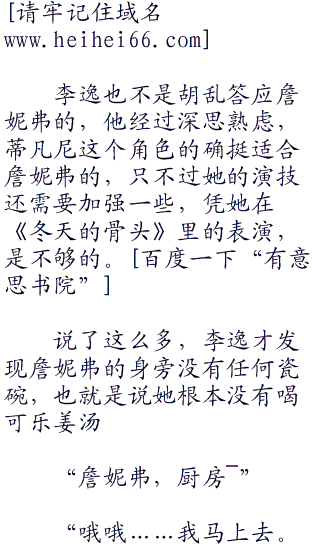 [请牢记住域名
www.heihei66.com]
李逸也不是胡乱答应詹
妮弗的，他经过深思熟虑，
蒂凡尼这个角色的确挺适合
詹妮弗的，只不过她的演技
还需要加强一些，凭她在
《冬天的骨头》里的表演，
是不够的。[百度一下“有意
思书院”]
说了这么多，李逸才发
现詹妮弗的身旁没有任何瓷
碗，也就是说她根本没有喝
可乐姜汤
“詹妮弗，厨房‾”
“哦哦……我马上去。